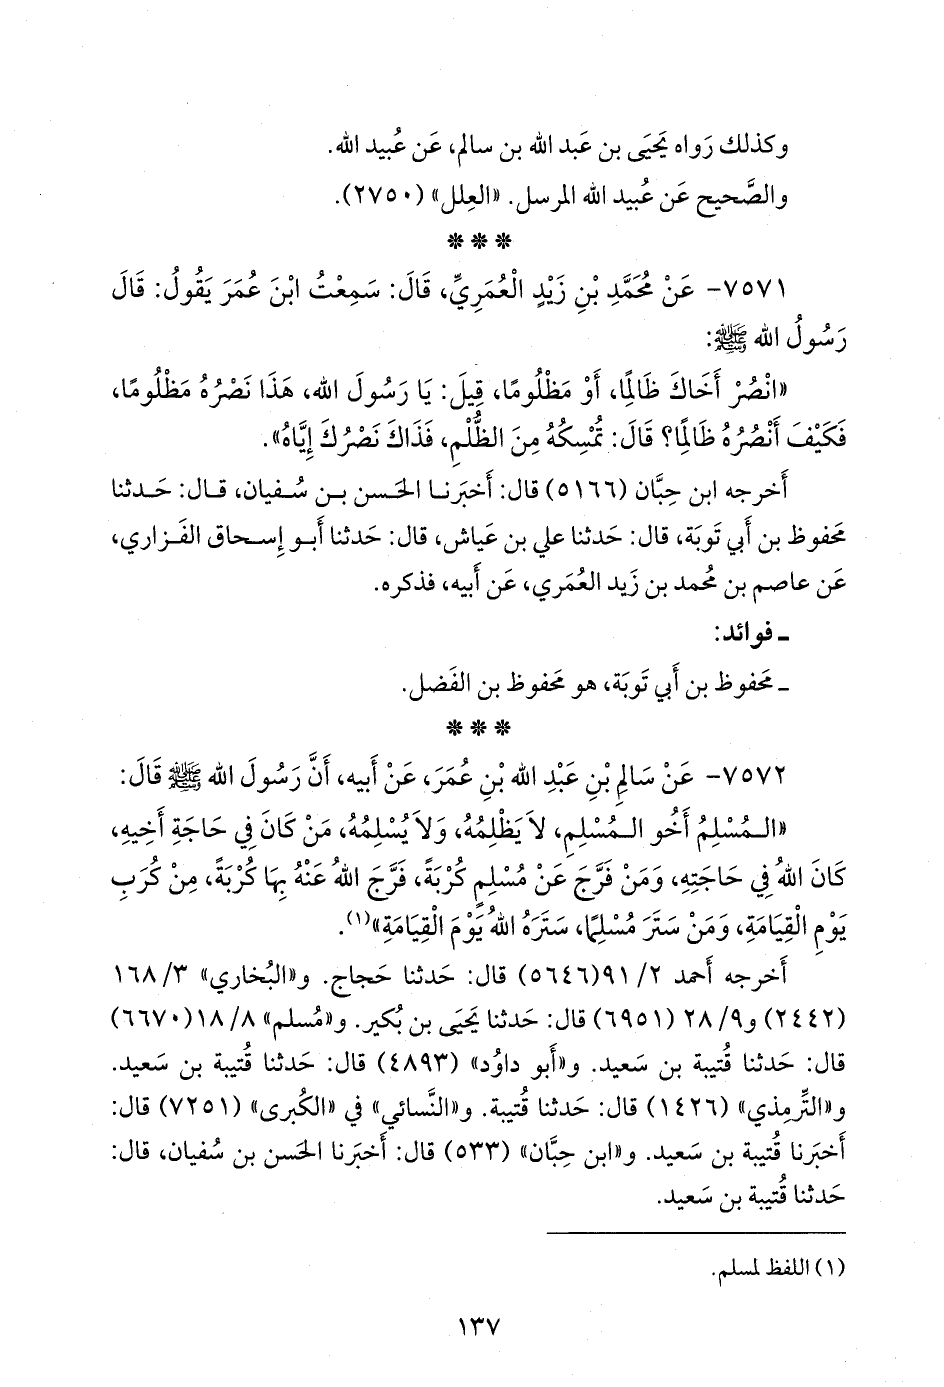 وكذلك رَواه يَحيَى بن عَبد الله بن سالم، عَن عُبيد الله.
والصَّحيح عَن عُبيد الله المرسل. «العِلل» (٢٧٥٠).
* * *
٧٥٧١- عَنْ مُحَمَّدِ بْنِ زَيْدٍ الْعُمَرِيِّ، قَالَ: سَمِعْتُ ابْنَ عُمَرَ يَقُولُ: قَالَ
رَسُولُ الله ﷺ:
«انْصُرْ أَخَاكَ ظَالِمًا، أَوْ مَظْلُومًا، قِيلَ: يَا رَسُولَ الله، هَذَا نَصْرُهُ مَظْلُومًا،
فَكَيْفَ أَنْصُرُهُ ظَالِمًا؟ قَالَ: تُمْسِكُهُ مِنَ الظُّلْمِ، فَذَاكَ نَصْرُكَ إِيَّاهُ».
أَخرجه ابن حِبَّان (٥١٦٦) قال: أَخبَرنا الحَسن بن سُفيان، قال: حَدثنا
مَحفوظ بن أَبي تَوبَة، قال: حَدثنا علي بن عَياش، قال: حَدثنا أَبو إِسحاق الفَزاري،
عَن عاصم بن مُحمد بن زَيد العُمَري، عَن أَبيه، فذكره.
ـ فوائد:
ـ مَحفوظ بن أَبي تَوبَة، هو مَحفوظ بن الفَضل.
* * *
٧٥٧٢- عَنْ سَالِمِ بْنِ عَبْدِ الله بْنِ عُمَرَ، عَنْ أَبيه، أَنَّ رَسُولَ الله ﷺ قَالَ:
«الْمُسْلِمُ أَخُو الْمُسْلِمِ، لاَ يَظْلِمُهُ، وَلاَ يُسْلِمُهُ، مَنْ كَانَ فِي حَاجَةِ أَخِيهِ،
كَانَ اللهُ فِي حَاجَتِهِ، وَمَنْ فَرَّجَ عَنْ مُسْلِمٍ كُرْبَةً، فَرَّجَ اللهُ عَنْهُ بِهَا كُرْبَةً، مِنْ كُرَبِ
يَوْمِ الْقِيَامَةِ، وَمَنْ سَتَرَ مُسْلِمًا، سَتَرَهُ اللهُ يَوْمَ الْقِيَامَةِ»(١).
أَخرجه أَحمد ٢/ ٩١(٥٦٤٦) قال: حَدثنا حَجاج. و«البُخاري» ٣/ ١٦٨
(٢٤٤٢) و٩/ ٢٨ (٦٩٥١) قال: حَدثنا يَحيَى بن بُكير. و«مُسلم» ٨/ ١٨(٦٦٧٠)
قال: حَدثنا قُتيبة بن سَعيد. و«أَبو داوُد» (٤٨٩٣) قال: حَدثنا قُتيبة بن سَعيد.
و«التِّرمِذي» (١٤٢٦) قال: حَدثنا قُتيبة. و«النَّسائي» في «الكُبرى» (٧٢٥١) قال:
أَخبَرنا قُتيبة بن سَعيد. و«ابن حِبَّان» (٥٣٣) قال: أَخبَرنا الحَسن بن سُفيان، قال:
حَدثنا قُتيبة بن سَعيد.
(١) اللفظ لمسلم.
١٣٧